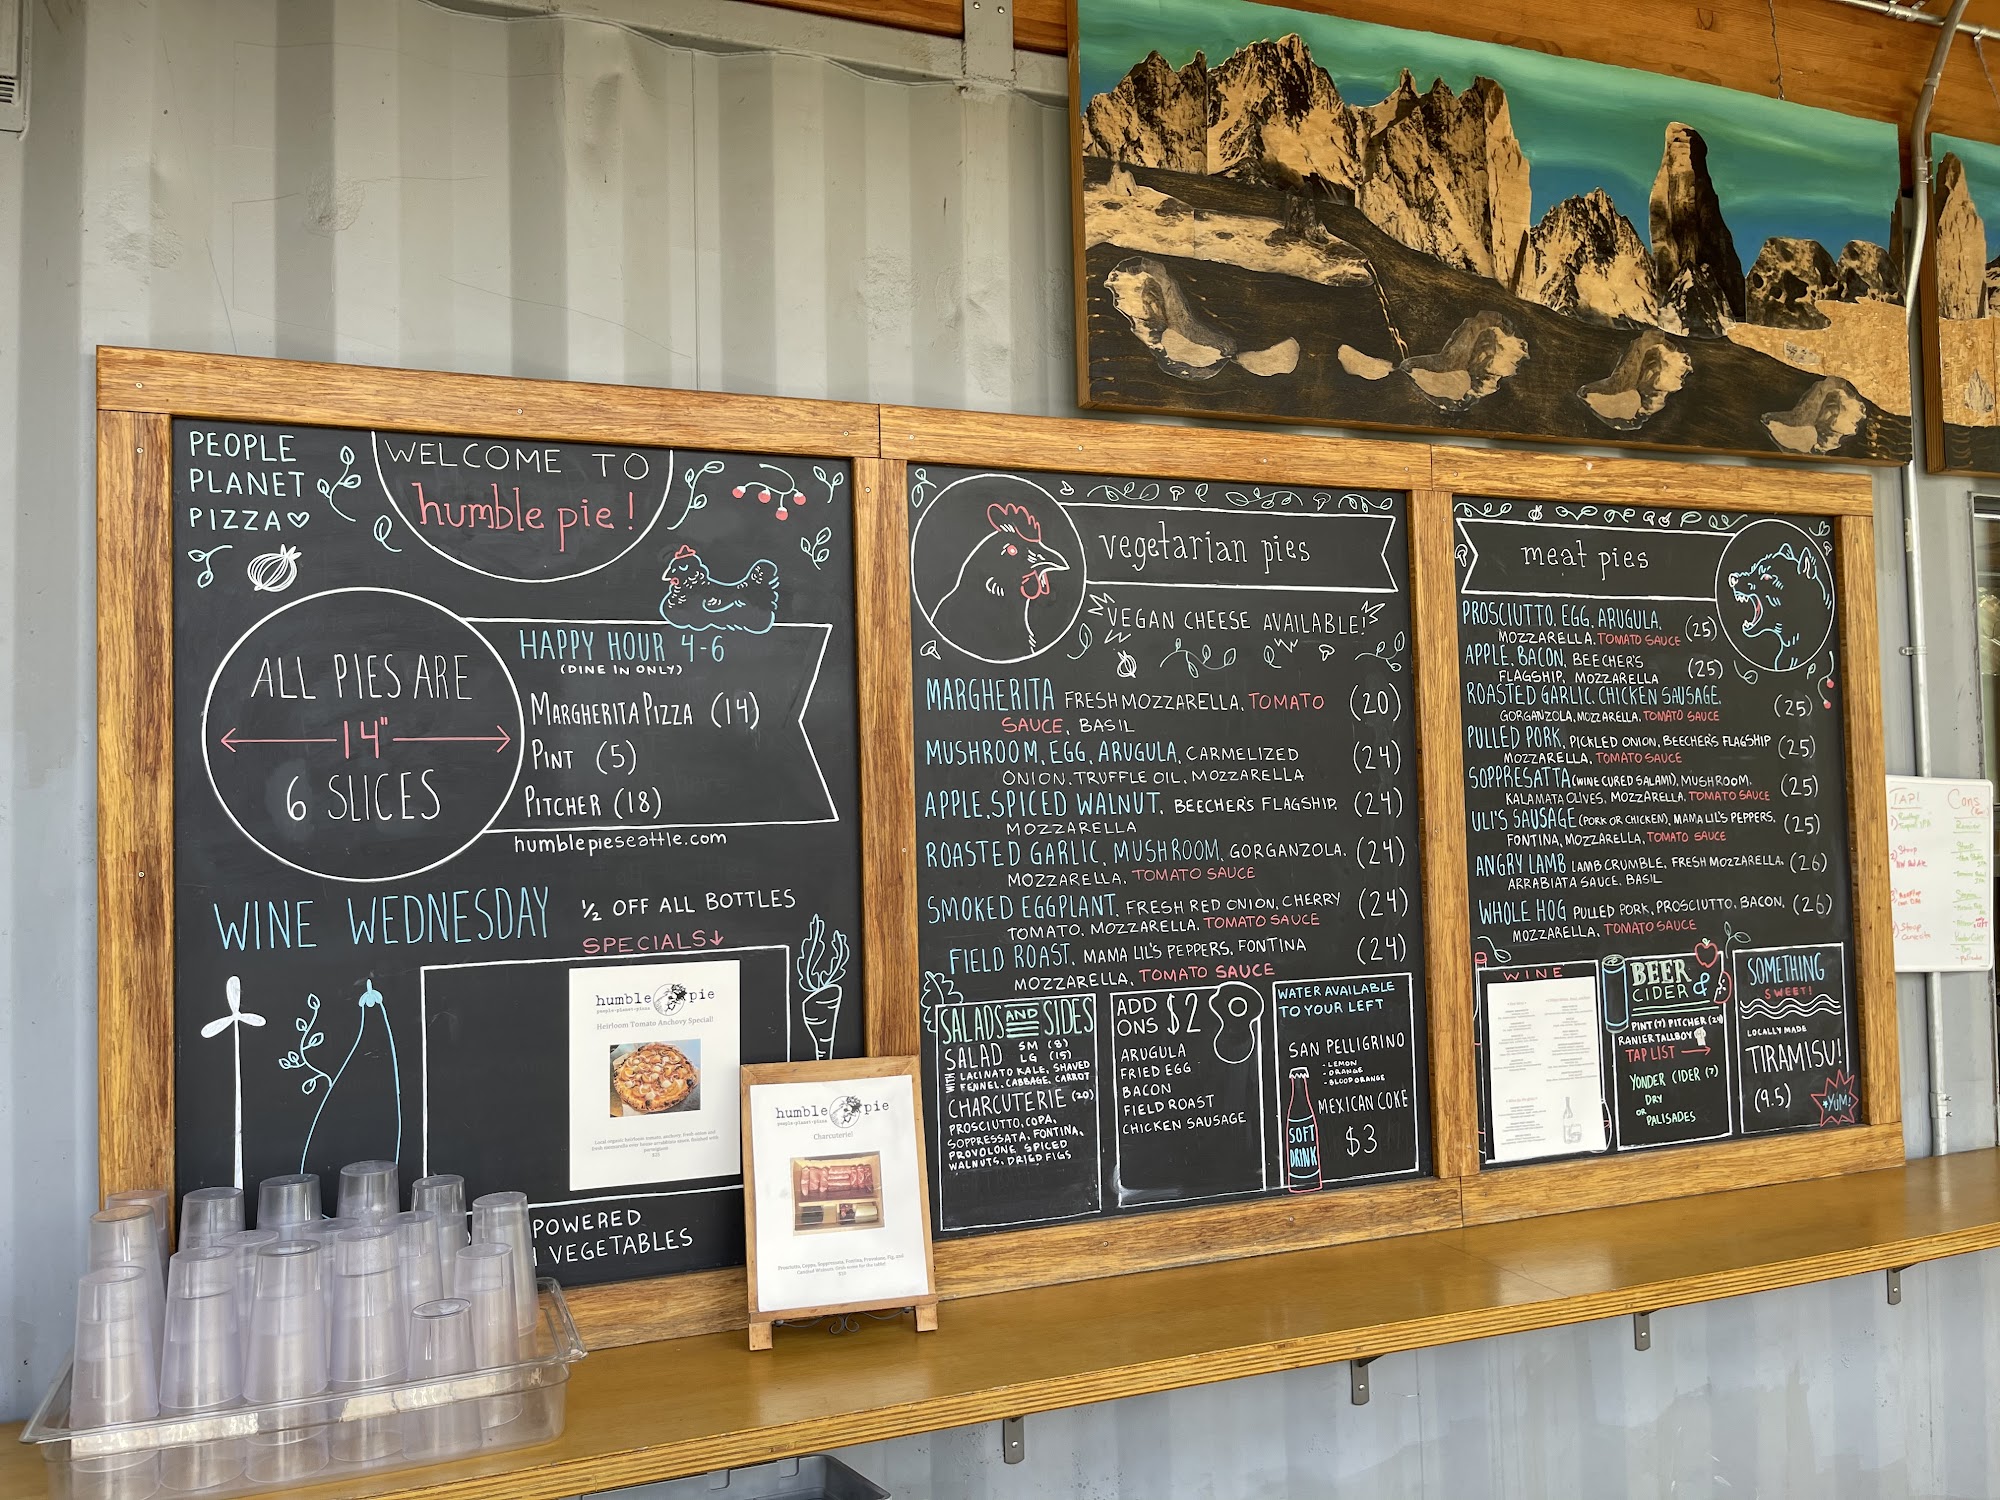 PEOPLE
PLANET
PIZZA
WELCOME TO
humble pie!
ALL PIES ARE
14"
6 SLICES
HAPPY HOUR 4-6
(DINE IN ONLY)
MARGHERITA PIZZA (14)
PINT (5)
PITCHER (18)
humblepieseattle.com
WINE WEDNESDAY
½ OFF ALL BOTTLES
SPECIALS
humble pie
people-planet-pizza
Heirloom Tomato Anchovy Special!
POWERED
VEGETABLES
humble pie
people-planet-pizza
Charcuterie!
vegetarian pies
VEGAN CHEESE AVAILABLE!
MARGHERITA FRESH MOZZARELLA, TOMATO (20)
SAUCE, BASIL
MUSHROOM, EGG, ARUGULA, CARMELIZED (24)
ONION, TRUFFLE OIL, MOZZARELLA
APPLE, SPICED WALNUT, BEECHER'S FLAGSHIP, (24)
MOZZARELLA
ROASTED GARLIC, MUSHROOM, GORGANZOLA, (24)
MOZZARELLA, TOMATO SAUCE
SMOKED EGGPLANT, FRESH RED ONION, CHERRY (24)
TOMATO, MOZZARELLA, TOMATO SAUCE
FIELD ROAST, MAMA LIL'S PEPPERS, FONTINA (24)
MOZZARELLA, TOMATO SAUCE
SALADS AND SIDES
SALAD SM (8)
LG (15)
WITH LACINATO KALE, SHAVED
FENNEL, CABBAGE, CARROT
CHARCUTERIE (20)
PROSCIUTTO, COPA,
SOPPRESSATA, FONTINA,
PROVOLONE SPICED
WALNUTS, DRIED FIGS
ADD
ONS $2
ARUGULA
FRIED EGG
BACON
FIELD ROAST
CHICKEN SAUSAGE
WATER AVAILABLE
TO YOUR LEFT
SAN PELLIGRINO
- LEMON
- ORANGE
- BLOOD ORANGE
MEXICAN COKE
$3
SOFT
DRINK
meat pies
PROSCIUTTO, EGG, ARUGULA,
MOZZARELLA, TOMATO SAUCE (25)
APPLE, BACON, BEECHER'S (25)
FLAGSHIP, MOZZARELLA
ROASTED GARLIC, CHICKEN SAUSAGE, (25)
GORGANZOLA, MOZZARELLA, TOMATO SAUCE
PULLED PORK, PICKLED ONION, BEECHER'S FLAGSHIP (25)
MOZZARELLA, TOMATO SAUCE
SOPPRESATTA (WINE CURED SALAMI), MUSHROOM, (25)
KALAMATA OLIVES, MOZZARELLA, TOMATO SAUCE
ULI'S SAUSAGE (PORK OR CHICKEN), MAMA LIL'S PEPPERS, (25)
FONTINA, MOZZARELLA, TOMATO SAUCE
ANGRY LAMB LAMB CRUMBLE, FRESH MOZZARELLA, (26)
ARRABIATA SAUCE, BASIL
WHOLE HOG PULLED PORK, PROSCIUTTO, BACON, (26)
MOZZARELLA, TOMATO SAUCE
WINE
BEER &
CIDER
PINT (7) PITCHER (24)
RANIER TALLBOY
TAP LIST
YONDER CIDER (7)
DRY
OR
PALISADES
SOMETHING
SWEET!
LOCALLY MADE
TIRAMISU!
(9.5)
*YUM!
TAP!
Cans